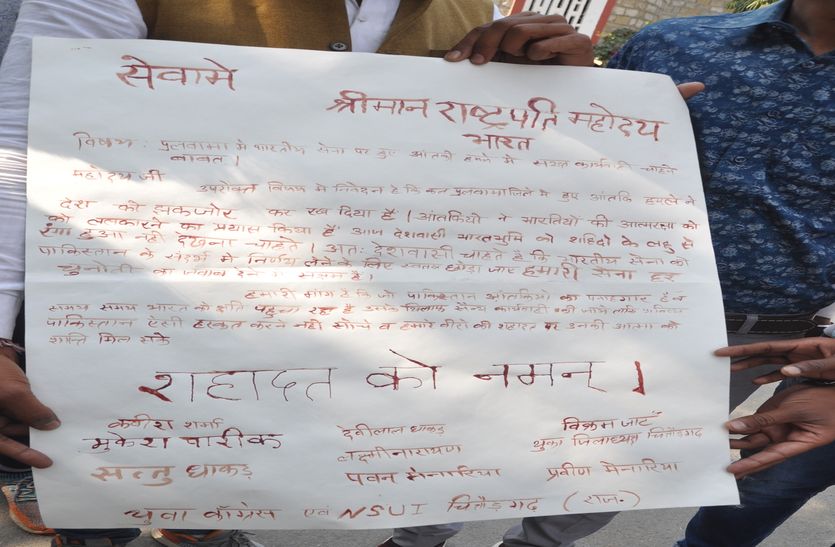 सेवामे
श्रीमान राष्ट्रपति महोदय
भारत
विषय : पुलवामा मे भारतीय सेना पर हुए आंतकी हमले मे सख्त कार्यवाही चाहने
बाबत ।
महोदय जी
उपरोक्त विषय मे निवेदन है कि कल पुलवामा जिले मे हुए आंतकि हमले ने
देश को झकजोर कर रख दिया है । आंतकियो ने भारतियों की आत्मरक्षा को
को ललकारने का प्रयास किया है आज देशवासी भारतभुमि को शहिदो के लहु से
रंगा हुआ नही देखना चाहते । अतः देशवासी चाहते है कि भारतीय सेना को
पाकिस्तान के संदर्भ मे निर्णय लेने के लिए स्वतंत्र छोड़ा जाए हमारी सेना हर
चुनौती का जवाब देने मे सक्षम है ।
हमारी मांग है कि जो पाकिस्तान आंतकियो का पनाहगार है व
समय समय भारत को क्षति पहुचा रहा है उसके खिलाफ सैन्य कार्यवाही की जाये ताकि भविष्य
पाकिस्तान ऐसी हरकत करने नही सोचे व हमारे वीरो की शहादत पर उनकी आत्मा को
शान्ति मिल सके
शहादत को नमन् ।
कवीश शर्मा
मुकेश पारीक
सत्तु धाकड़
देवीलाल धाकड़
लक्ष्मीनारायण
पवन मेनारिया
विक्रम जाट
युका जिलाध्यक्ष चितौडगढ
प्रवीण मेनारिया
युवा कॉग्रेस एवं NSUI चितौड़गढ (राज.)